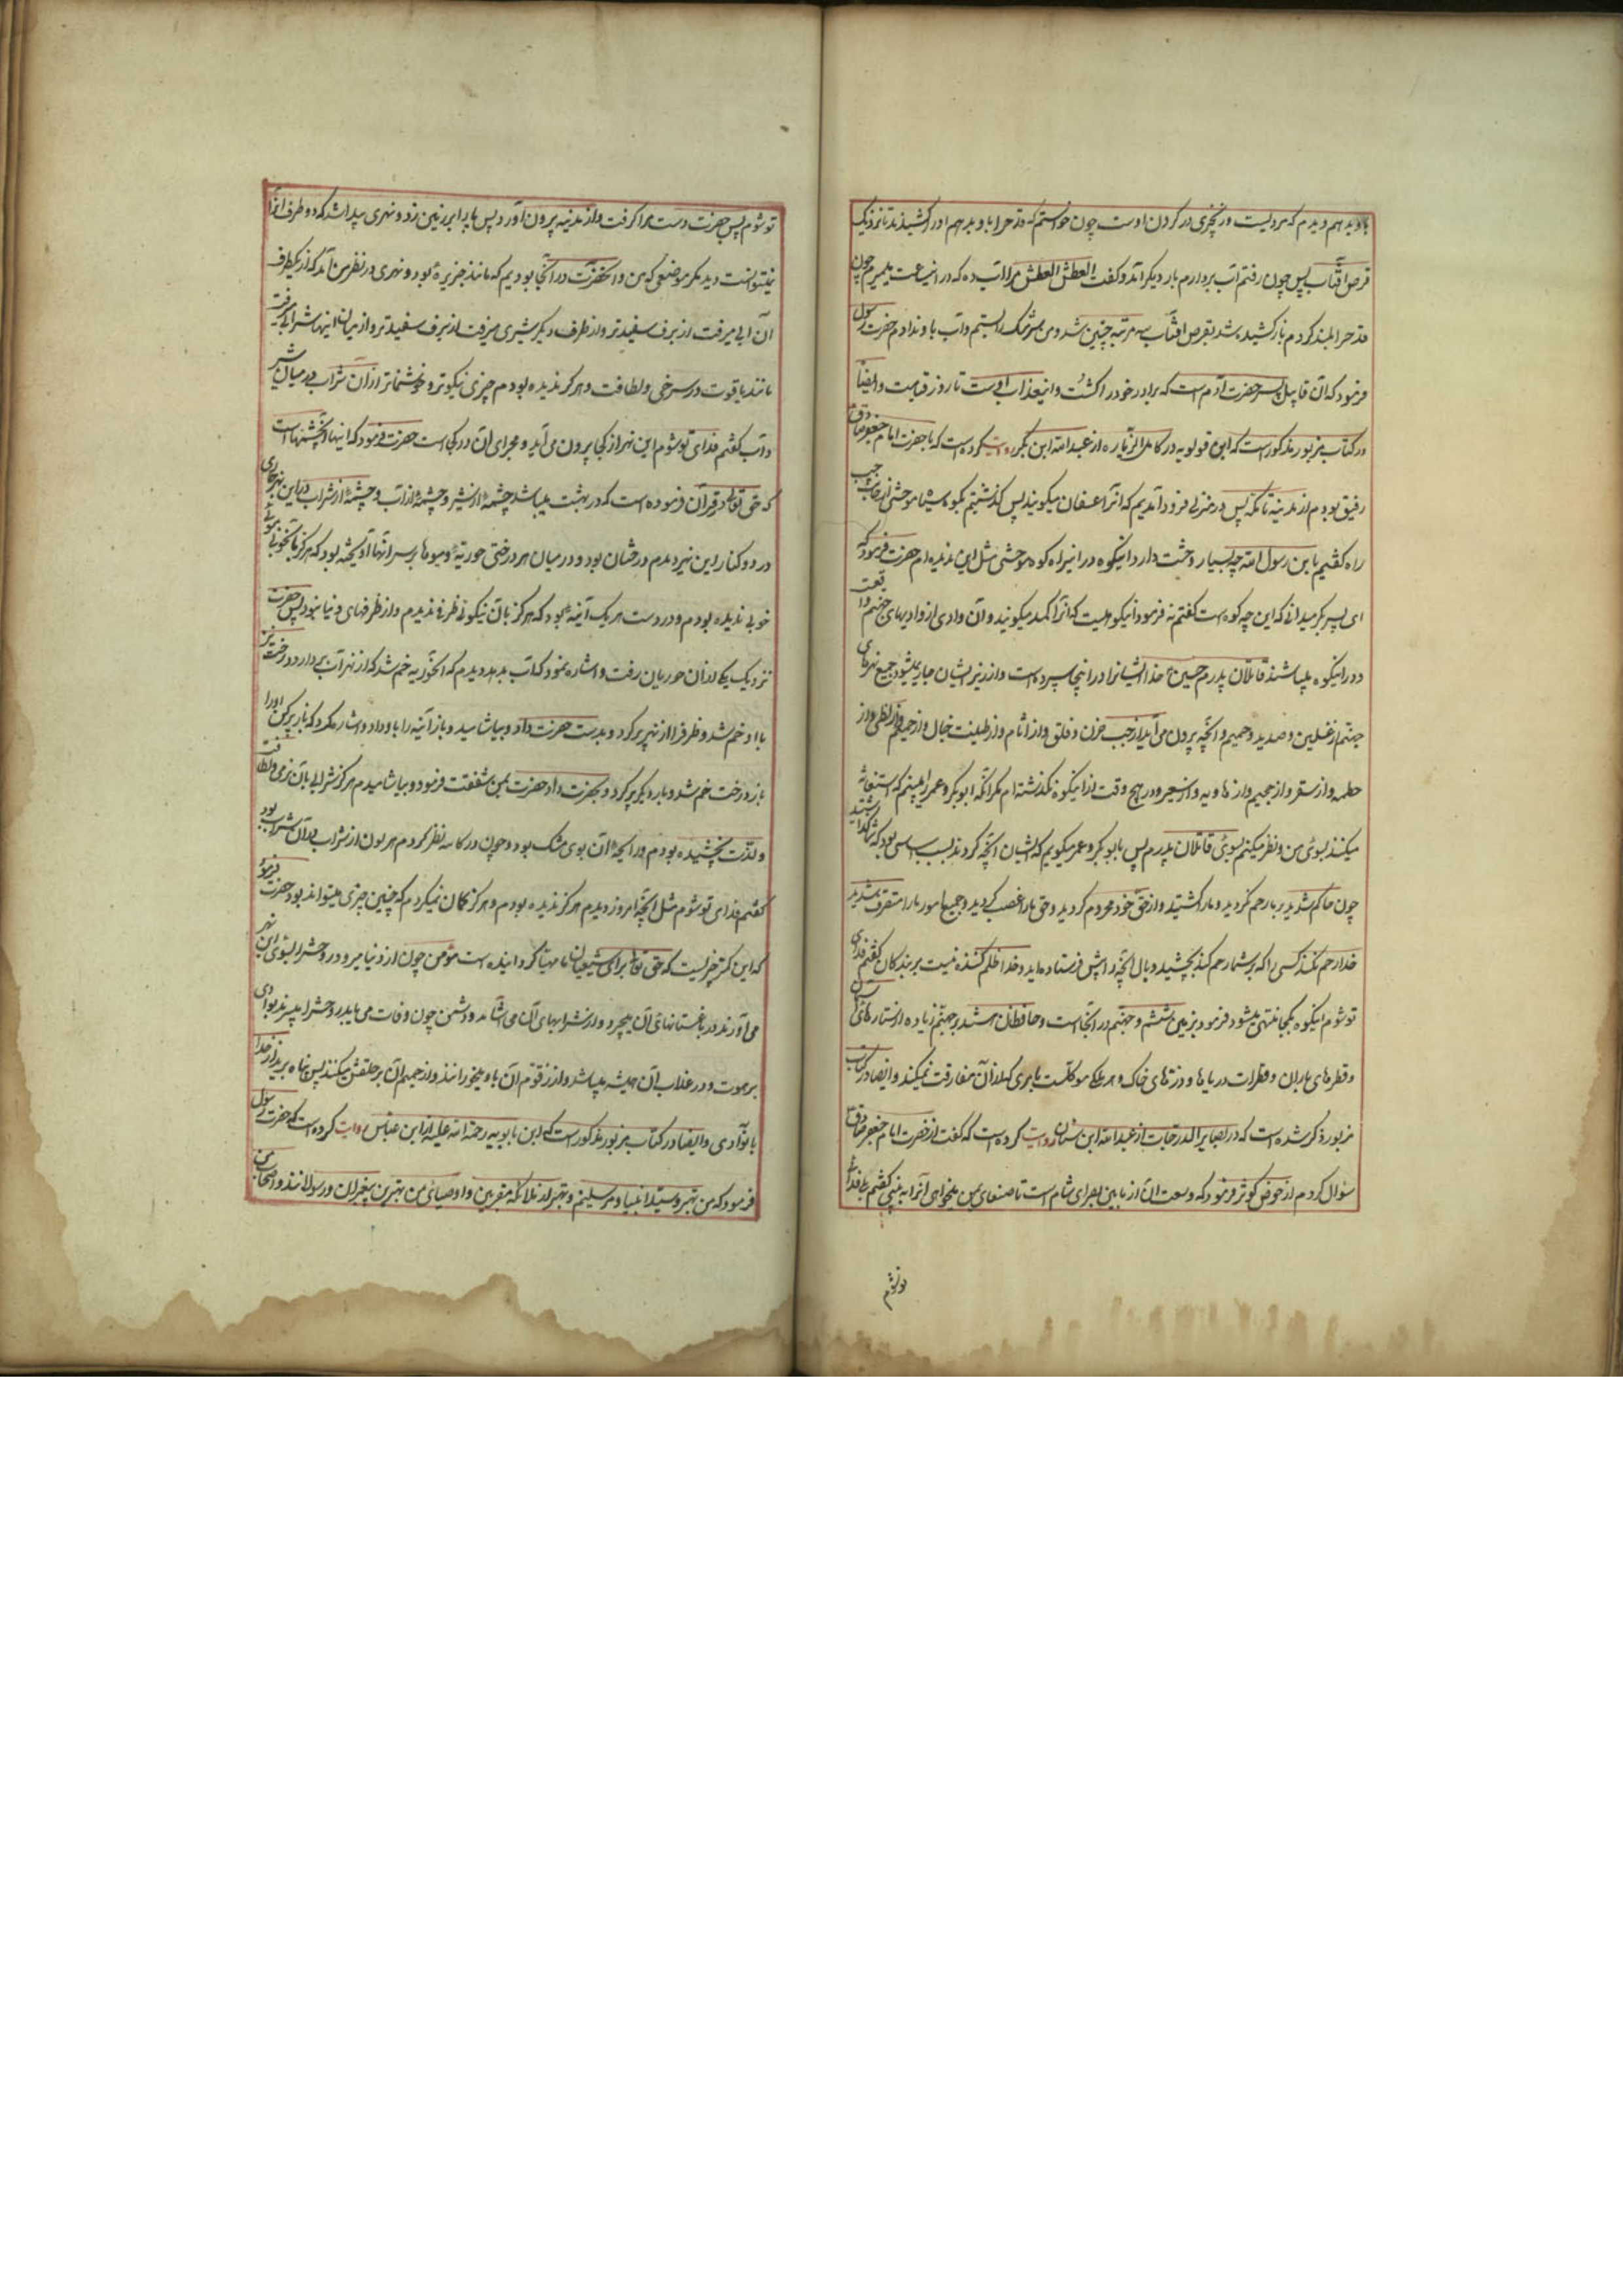 باو بدهم دیدم که مردیست و زنجیری در گردن اوست چون خواستم که قدح را باو بدهم او را کشیدند تا نزدیک
قرص آفتاب پس چون رفتم آب بردارم بار دیگر آمد و گفت العطش العطش مرا آب ده که در اینساعت میمیرم چون
قدح را بلند کردم باز کشیده شد بقرص آفتاب سه مرتبه چنین شد و من سر مشک را بستم و آب باو ندادم حضرت رسول
فرمود که آن قابیل پسر حضرت آدم است که برادر خود را کشت و اینعذاب اوست تا روز قیامت و ایضا
در کتاب مزبور مذکور است که ابن قولویه در کامل الزیاره از عبد الله ابن بکر روایت کرده است که با حضرت امام جعفر صادق
رفیق بودم از مدینه تا مکه پس در منزلی فرود آمدیم که آنرا عسفان میگویند پس گذشتیم بکوه سیاه موحشی از جانب چپ
راه گفتیم یا بن رسول الله چه بسیار وحشت دارد اینکوه در اینراه کوه موحشی مثل این ندیده ام حضرت فرمود که
ای پسر بکر میدانی که این چه کوه است گفتم نه فرمود اینکوهیست که آنرا کمد میگویند و آن وادی از وادیهای جهنم واقعست
و در اینکوه میباشند قاتلان پدرم حسین ع خدا ایشانرا در اینجا سپرده است و از زیر ایشان جاری میشود جمیع نهرهای
جهنم از غسلین و صدید و حمیم و آنچه بیرون می آید از جب حزن و فلق و از اثام و از طینت خبال و از جهنم و از لظی و از
حطمه و از سقر و از جحیم و از هاویه و از سعیر و در هیچ وقت از اینکوه نگذشته ام مگر آنکه ابو بکر و عمر را میبینم که استغاثه
میکنند بسوی من و نظر میکنم بسوی قاتلان پدرم پس بابو بکر و عمر میگویم که ایشان آنچه کردند بسبب اساسی بود که شما گذاشتید
چون حاکم شدید بر ما رحم نکردید و ما را کشتید و از حق خود محروم کردید و حق ما را غصب کردید و جمیع امور ما را متصرف شدید
خدا رحم نکند کسی را که بر شما رحم کند بچشید وبال آنچه را پیش فرستاده اید و خدا ظلم کننده نیست بر بندگان گفتم فدای
تو شوم اینکوه بکجا منتهی میشود فرمود بزمین ششم و جهنم در آنجا است و حافظان هستند بر جهنم زیاده از ستاره های آسمان
و قطره های باران و قطرات دریاها و ذره های خاک و هر ملکی موکلست بامری که از آن مفارقت نمیکند و ایضا در کتاب
مزبور ذکر شده است که در بصایر الدرجات از عبد الله ابن سنان روایت کرده است که گفت از حضرت امام جعفر صادق
سؤال کردم از حوض کوثر فرمود که وسعت آن از مابین بصرای شام است تا صنعای یمن میخواهی آنرا به بینی گفتم بلی فدای
تو شوم
تو شوم پس حضرت دست مرا گرفت و از مدینه بیرون آورد پس پا را بر زمین زد و نهری پیدا شد که دو طرف آنرا
نمیتوانست دید مگر موضعی که من و آنحضرت در آنجا بودیم که مانند جزیره بود و نهری در نظر من آمد که از یکطرف
آن آبی میرفت از برف سفیدتر و از طرف دیگر شیری میرفت از برف سفیدتر و از میان اینها شرابی میرفت
مانند یاقوت در سرخی و لطافت و هرگز ندیده بودم چیزی نیکوتر و خوشنماتر از آن شراب در میان شیر
و آب گفتم فدای تو شوم این نهر از کجا بیرون می آید و مجرای آن در کجا است حضرت فرمود که اینها از چشمهاست
که حق تعالی در قرآن فرموده است که در بهشت میباشد چشمه از شیر و چشمه از آب و چشمه از شراب در این نهر جاری
در دو کنار این نهر دیدم درختان بود و در میان هر درختی حوریه و موها بر سر آنها آویخته بود که هرگز بآنخوبی موئی
خوبی ندیده بودم و در دست هر یک آنیه بود که هرگز بآن نیکوئی ظرفی ندیدم و از ظرفهای دنیا نبود پس حضرت
نزدیک یکی از آن حوریان رفت و اشاره نمود که آب بده دیدم که آنحوریه خم شد که از نهر آب بردارد درخت نیز
با او خم شد و ظرف را از نهر پر کرد و بدست حضرت داد و بیاشامید و باز آنیه را باو داد و اشاره کرد که باز پر کن او را
باز درخت خم شد و بار دیگر پر کرد و بحضرت داد حضرت بمن شفقت فرمود و بیاشامیدم هرگز شرابی بآن نرمی و لطافت
و لذت نچشیده بودم و رایحه آن بوی مشک بود و چون در کاسه نظر کردم هر لون از شراب در آن شراب بود
گفتم فدای تو شوم مثل آنچه امروز دیدم هرگز ندیده بودم و هرگز گمان نمیکردم که چنین چیزی میتواند بود حضرت فرمود
که این کمتر چیزیست که حق تعالی برای شیعیان ما مهیا گردانیده است مؤمن چون از دنیا میرود روحش را بسوی این نهر
می آورند و در باغستانهای آن میچرد و از شرابهای آن می آشامد و دشمن چون وفات می یابد روحش را میبرند بوادی
برهوت و در عذاب آن همیشه میباشد و از زقوم آن باو میخورانند و از حمیم آن بر حلقش میکنند پس پناه برید از خدا
بانوادی و ایضا در کتاب مزبور مذکور است که ابن بابویه رحمه الله علیه از ابن عباس روایت کرده است که حضرت رسول
فرمود که من بهتر و سید انبیا و مرسلینم و بهتر از ملائکه مقربین و اوصیای من بهترین پیغمبران و رسولانند و اصحاب من